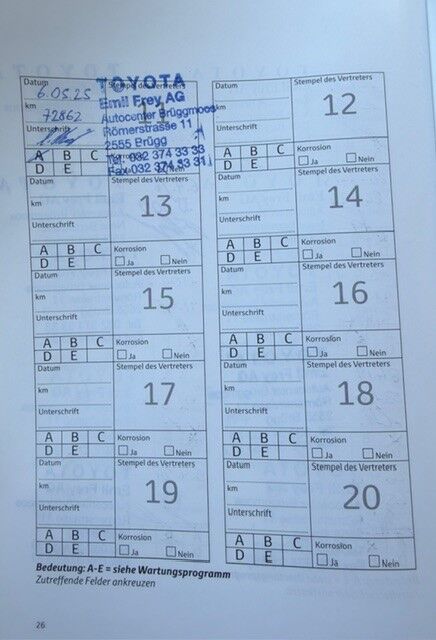 Datum
6.05.25
km
72862
Unterschrift
Stempel des Vertreters
11
TOYOTA
Emil Frey AG
Autocenter Brüggmoos
Römerstrasse 11
2555 Brügg
Tel. 032 374 33 33
Fax 032 374 33 31
A B C
D E
Datum
km
Unterschrift
Stempel des Vertreters
12
A B C
D E
Korrosion
Ja Nein
Datum
km
Unterschrift
Stempel des Vertreters
13
A B C
D E
Korrosion
Ja Nein
Datum
km
Unterschrift
Stempel des Vertreters
14
A B C
D E
Korrosion
Ja Nein
Datum
km
Unterschrift
Stempel des Vertreters
15
A B C
D E
Korrosion
Ja Nein
Datum
km
Unterschrift
Stempel des Vertreters
16
A B C
D E
Korrosion
Ja Nein
Datum
km
Unterschrift
Stempel des Vertreters
17
A B C
D E
Korrosion
Ja Nein
Datum
km
Unterschrift
Stempel des Vertreters
18
A B C
D E
Korrosion
Ja Nein
Datum
km
Unterschrift
Stempel des Vertreters
19
A B C
D E
Korrosion
Ja Nein
Datum
km
Unterschrift
Stempel des Vertreters
20
A B C
D E
Korrosion
Ja Nein
Bedeutung: A-E = siehe Wartungsprogramm
Zutreffende Felder ankreuzen
26